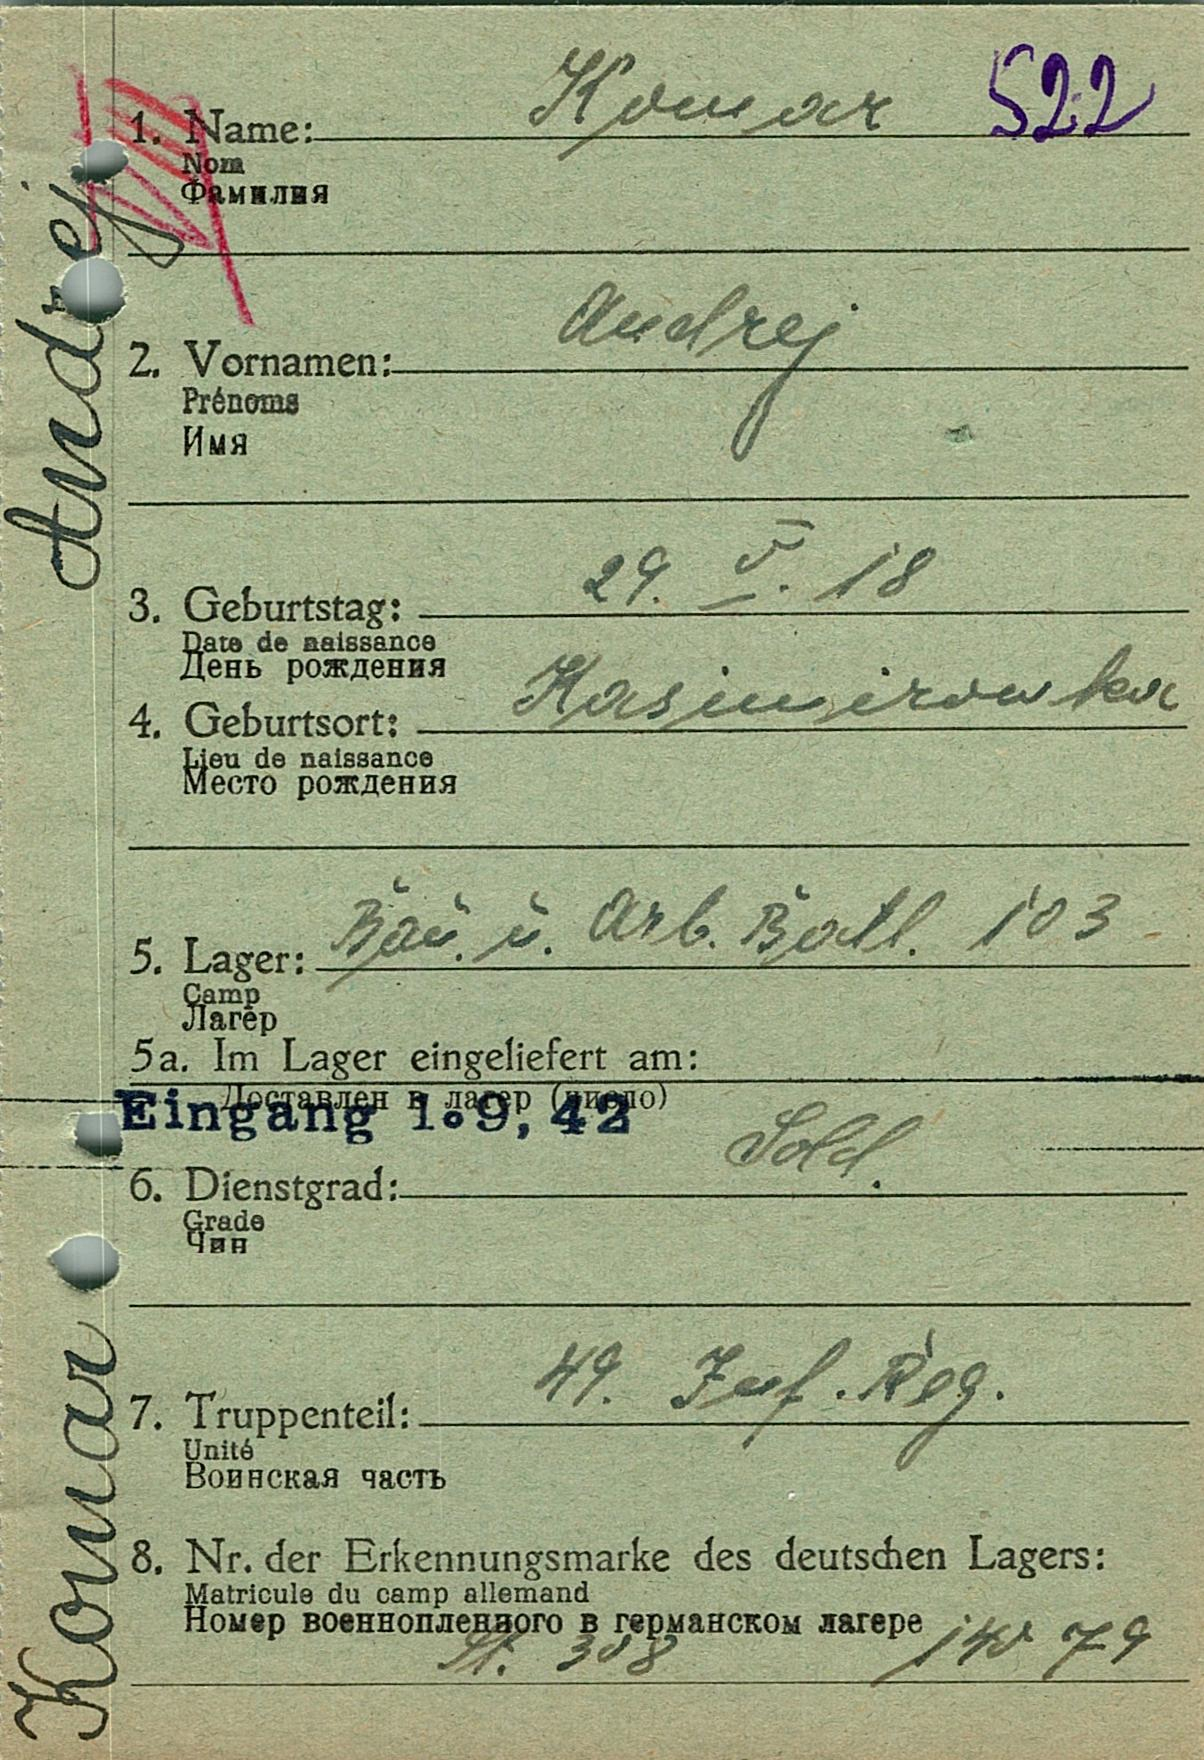 1. Name: Komar 522
Nom
Фамилия
2. Vornamen: Andrej
Prénoms
Имя
3. Geburtstag: 29. V. 18
Date de naissance
День рождения
4. Geburtsort: Kasimirowka
Lieu de naissance
Место рождения
5. Lager: Bau. u. Arb. Batl. 103
Camp
Лагер
5a. Im Lager eingeliefert am:
Доставлен в лагер (число)
Eingang 1.9,42
6. Dienstgrad: Sold.
Grade
Чин
7. Truppenteil: 49. Inf. Reg.
Unité
Воинская часть
8. Nr. der Erkennungsmarke des deutschen Lagers:
Matricule du camp allemand
Номер военнопленного в германском лагере
St. 308 140 79
Komar Andrej